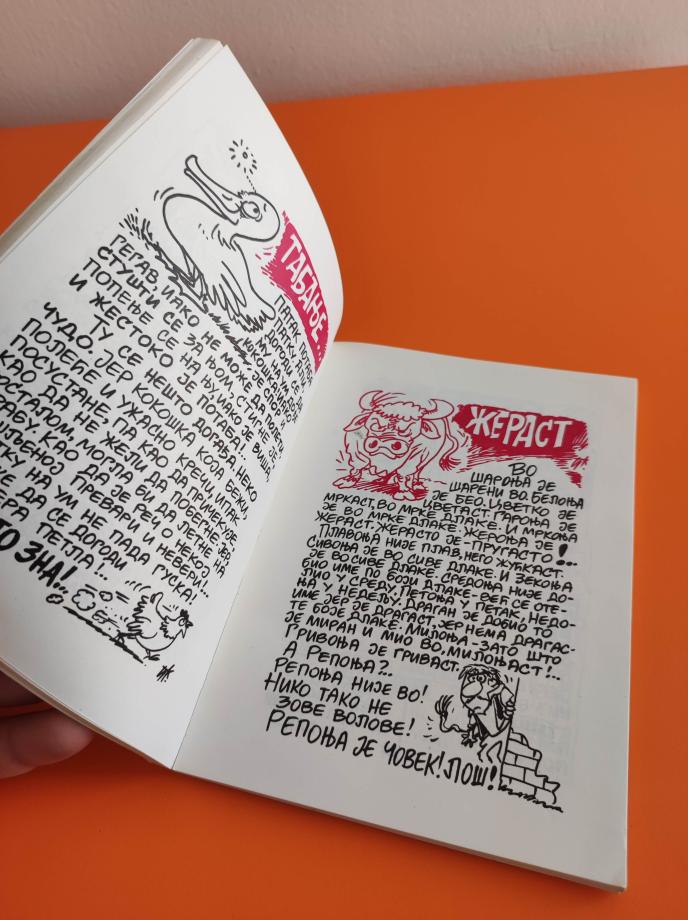 ТАБАЊЕ...
ПАТАК ПОПАЈ
ПАТКУ АЛИ
ГЕГАВ, ИАКО НЕ МОЖЕ ДА ПОЛЕ
СТУШТИ СЕ ЗА ЊОМ, СТИГНЕ ЈЕ,
ПОПЕЊЕ СЕ НА ЊУ, ИАКО ЈЕ ВИШЕ
И ЖЕСТОКО ЈЕ ПОТАПЕ!..
ТУ СЕ НЕШТО ДОГАЂА, НЕКО
ЧУДО. ЈЕР КОКОШКА КОЈА БЕЖИ,
ПОЛЕЋЕ И УЖАСНО КРЕЧИ, ИПАК
ПОСУСТАНЕ, ПА КАО ДА ПРИМЕЋУЈЕ
КАО ДА НЕ ЖЕЛИ ДА ПОБЕГНЕ. ЈЕР,
МОГЛА ЈЕ БИ ДА ЛЕТНЕ НА
КАО ДА ЈЕ РЕЧ О НЕКОЈ
ПРЕВАРИ И НЕВЕРИ!..
НА УМ НЕ ПАДА ГУСКА!
ДА СЕ ДОГОДИ
ПЕТЛА!...
ЗНА!..
ЖЕРАСТ
ВО
ШАРОЊА ЈЕ
ШАРЕНИ ВО. БЕЛОЊА
ЈЕ БЕО, ЦВЕТКО ЈЕ
ЦВЕТАСТ. ГАРОЊА ЈЕ
МРКАСТ, ВО МРКЕ ДЛАКЕ. И МРКОЊА
ЈЕ ВО МРКЕ ДЛАКЕ. ЖЕРОЊА ЈЕ!
ЖЕРАСТ. ЖЕРАСТО ЈЕ-ПРУГАСТО!...
ПЛАВОЊА НИЈЕ ПЛАВ, НЕГО ЖУЋКАСТ.
СИВОЊА ЈЕ ВО СИВЕ ДЛАКЕ. И ЗЕКОЊА
ЈЕ ВО СИВЕ ДЛАКЕ. СРЕДОЊА НИЈЕ ДО-
БИО ИМЕ ПО БОЈИ ДЛАКЕ-ВЕЋ СЕ ОТЕ-
ЛИО У СРЕДУ, ПЕТОЊА У ПЕТАК, НЕДО-
ЊА У НЕДЕЉУ. ДРАГАН ЈЕ ДОБИО ТО
ИМЕ ЈЕР ЈЕ ДРАГАСТ, ЈЕР НЕМА ДРАГАС-
ТЕ БОЈЕ ДЛАКЕ. МИЛОЊА-ЗАТО ШТО
ЈЕ МИРАН И МИО ВО, МИЛОЊАСТ!..
ГРИВОЊА ЈЕ ГРИВАСТ.
А РЕПОЊА?..
РЕПОЊА НИЈЕ ВО!
НИКО ТАКО НЕ
ЗОВЕ ВОЛОВЕ!
РЕПОЊА ЈЕ ЧОВЕК! ЛОШ!